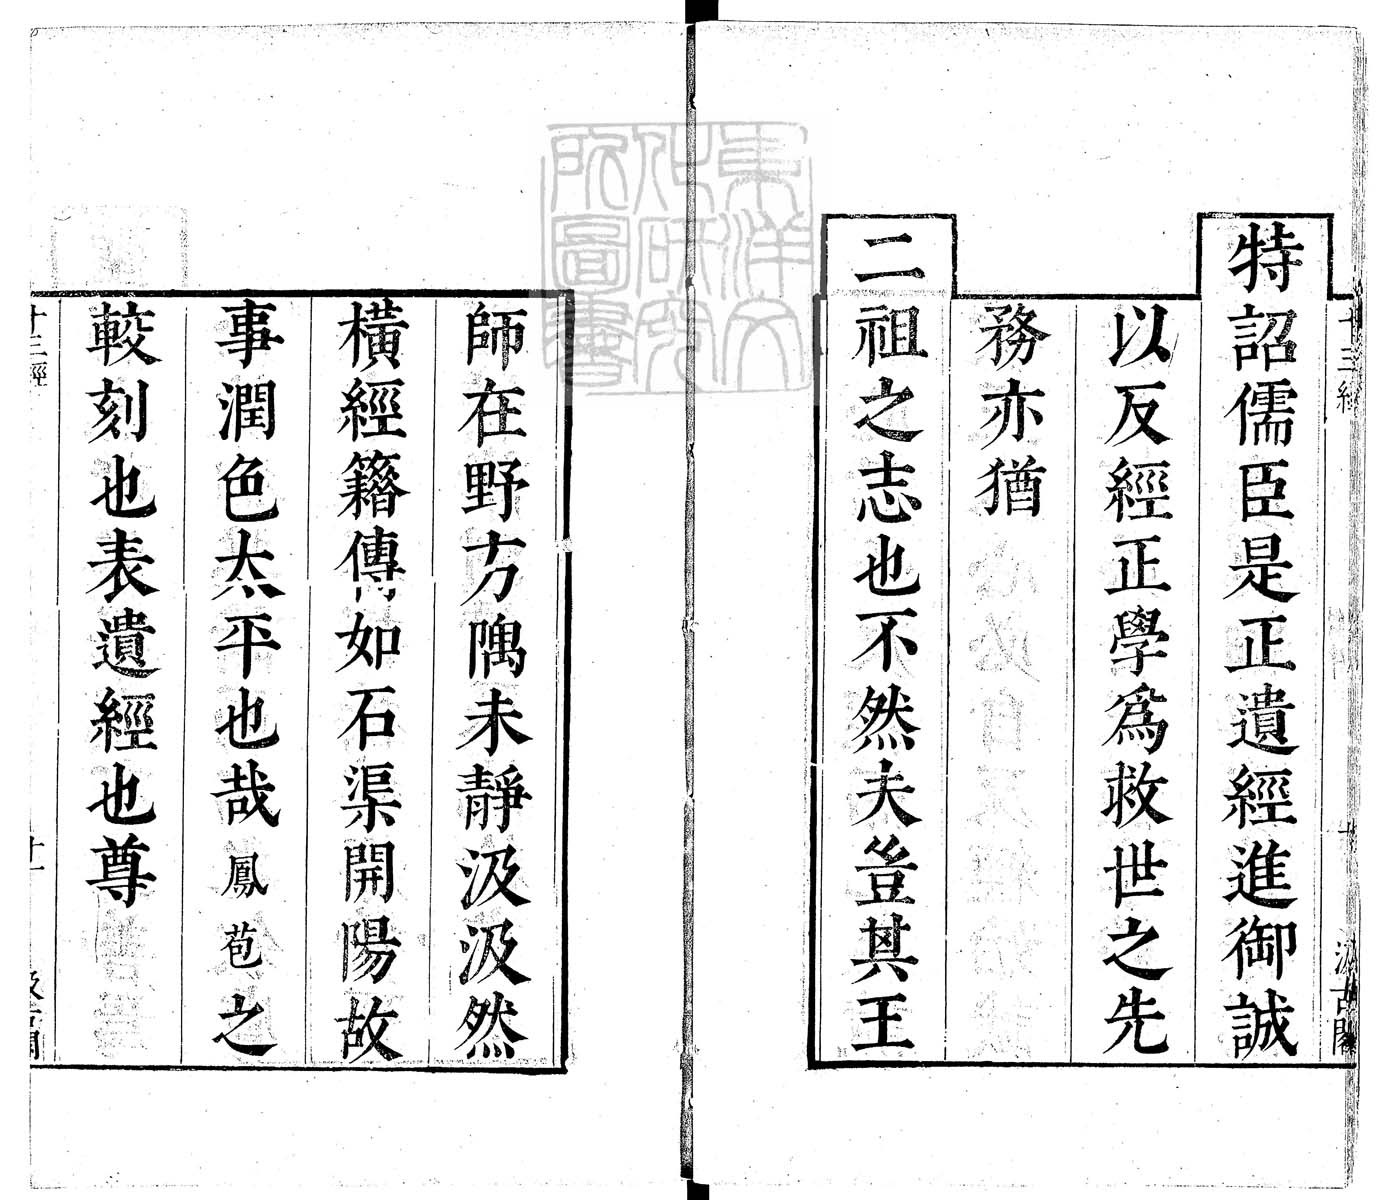 十三經
汲古閣
特詔儒臣是正遺經進御誠
以反經正學爲救世之先
務亦猶
二祖之志也不然夫豈其王
東洋文
化研究
所圖書
師在野方隅未靜汲汲然
橫經籍傳如石渠開陽故
事潤色太平也哉鳳苞之
較刻也表遺經也尊
十三經
十一
汲古閣